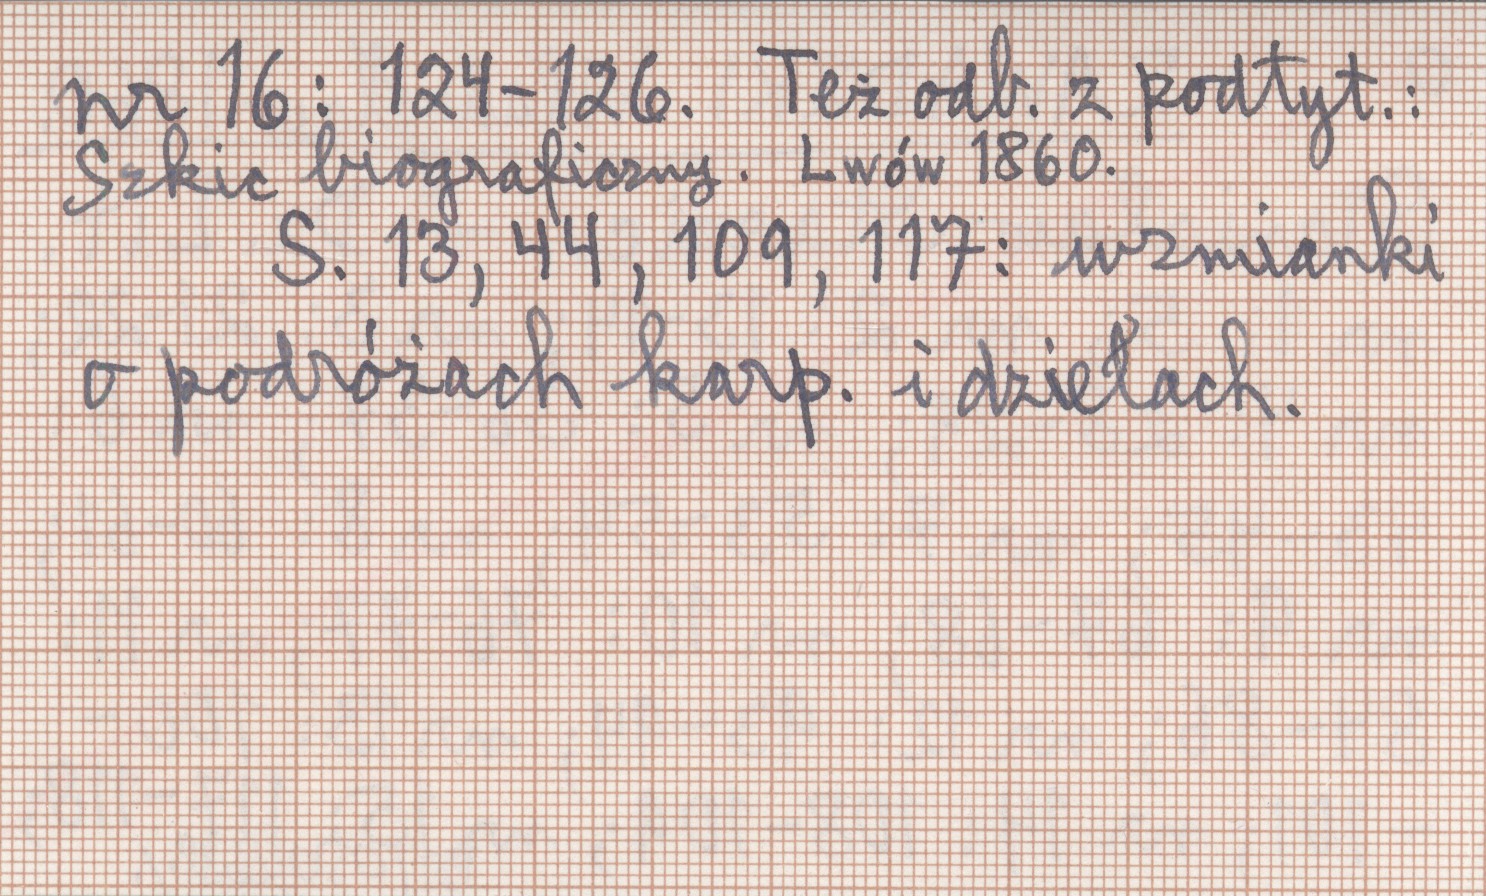 nr 16: 124-126. Też odb. z podtyt.:
Szkic biograficzny. Lwów 1860.
S. 13, 44, 109, 117: wzmianki
o podróżach karp. i dziełach.